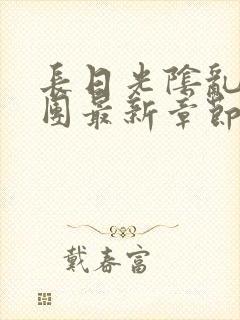 長日光陰亂
團最新章節
戴春富